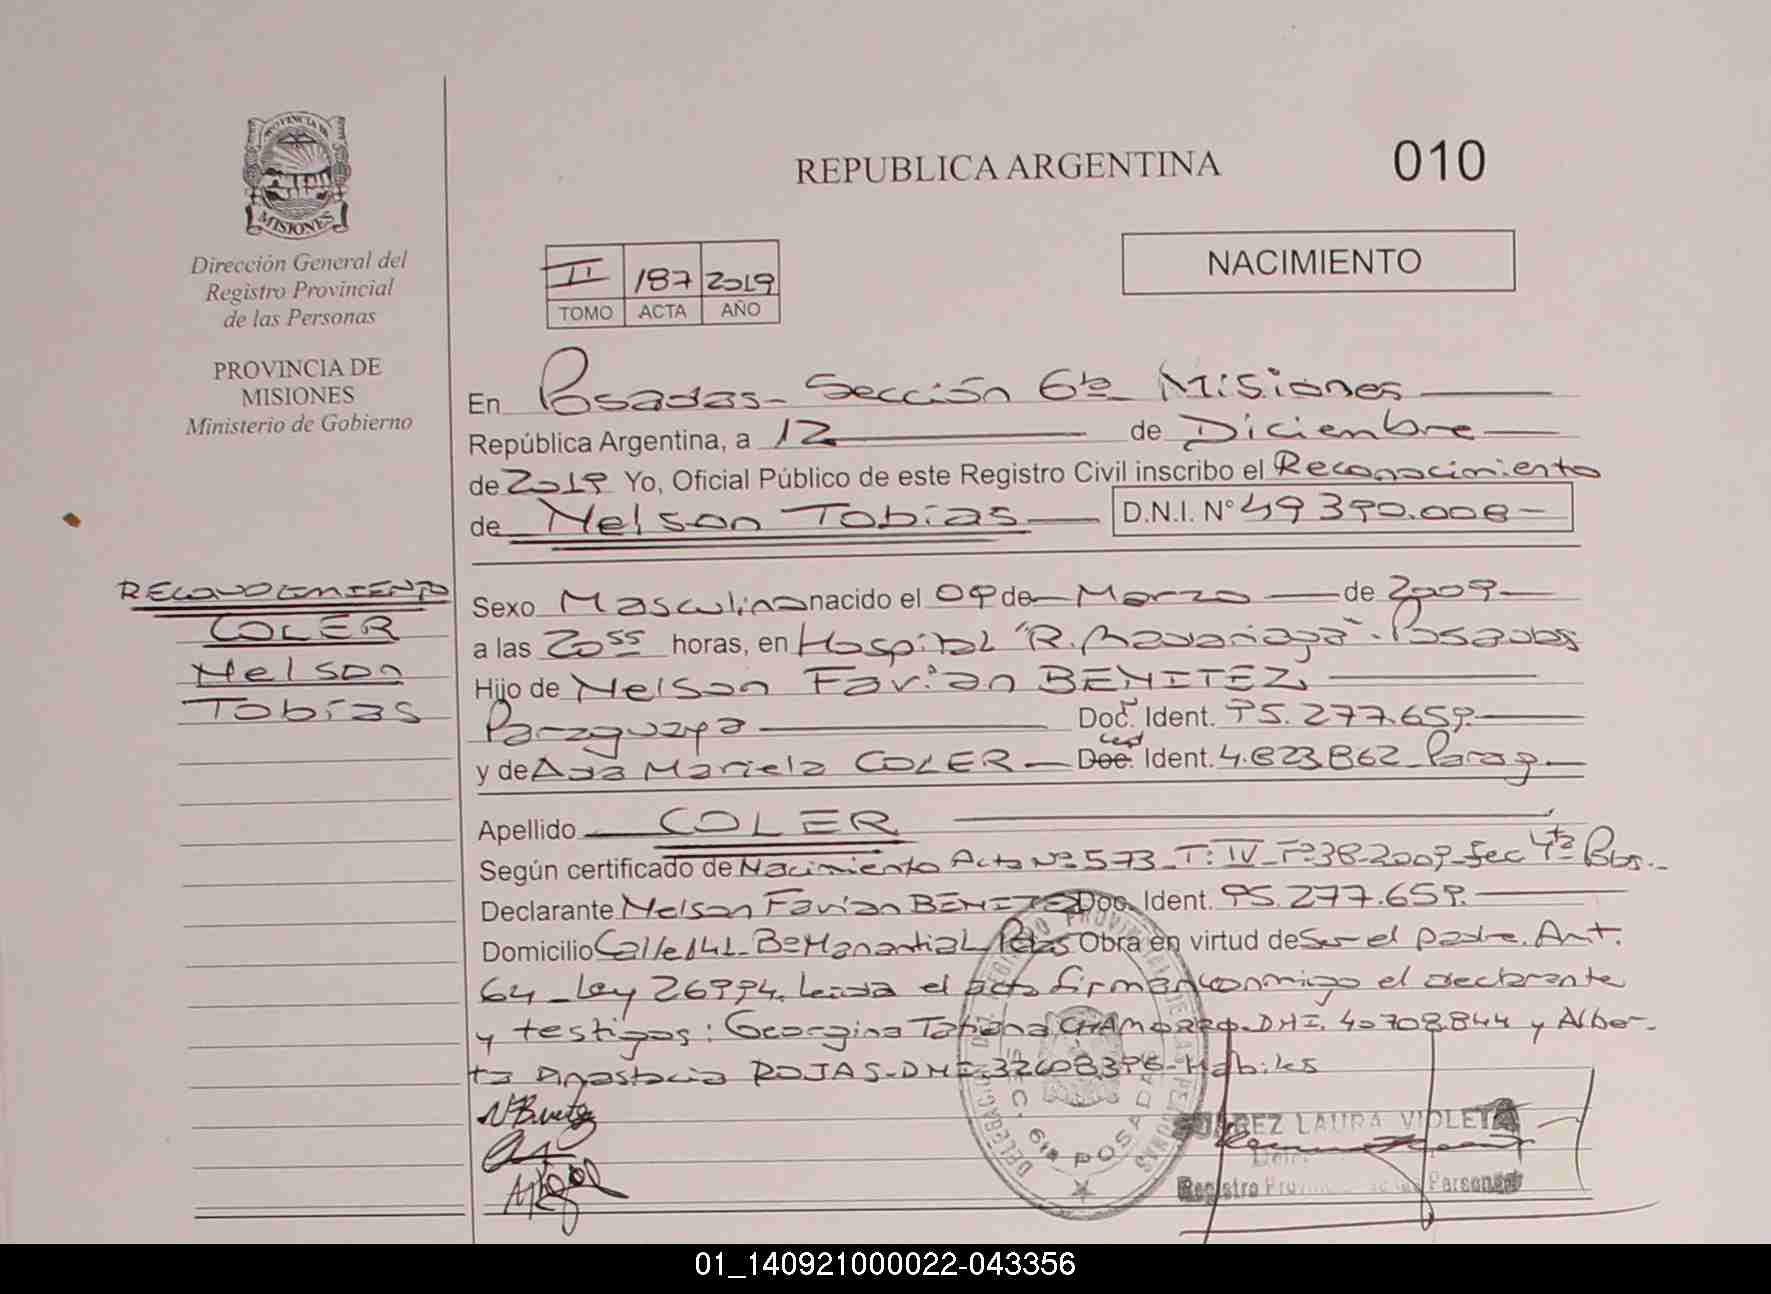 PROVINCIA DE
MISIONES
Dirección General del
Registro Provincial
de las Personas
PROVINCIA DE
MISIONES
Ministerio de Gobierno
REPUBLICA ARGENTINA
010
NACIMIENTO
II 187 2019
TOMO ACTA AÑO
En Posadas - Sección 6ta Misiones
República Argentina, a 12 de Diciembre
de 2019 Yo, Oficial Público de este Registro Civil inscribo el Reconocimiento
de Nelson Tobias D.N.I. N° 49390.008-
RECONOCIMIENTO
COLER
Nelson
Tobias
Sexo Masculino nacido el 09 de Marzo de 2009
a las 20 55 horas, en Hospital "R. Madariaga". Posadas
Hijo de Nelson Favian BENITEZ,
Paraguaya Doc. Ident. 95.277.659.
y de Ada Mariela COLER - Doc. Ced Ident. 4.823862 Parag
Apellido COLER
Según certificado de Nacimiento Acta Nº 573 - T: IV - Fº 38-2009 - Sec 4ta Pdas.
Declarante Nelson Favian BENITEZ Doc. Ident. 95.277.659.
Domicilio Calle 141 - Bº Manantial Pdas Obra en virtud de Ser el padre. Art.
64 - Ley 26994. Leida el acta firman conmigo el declarante
y testigos: Georgina Tatiana CHAMORRO - DNI. 40708.844 y Alber-
ta Anastacia ROJAS - DNI. - Habiles
SUAREZ LAURA VIOLETA
Registro de las Personas
SEC. 6ta POSADAS
01_140921000022-043356